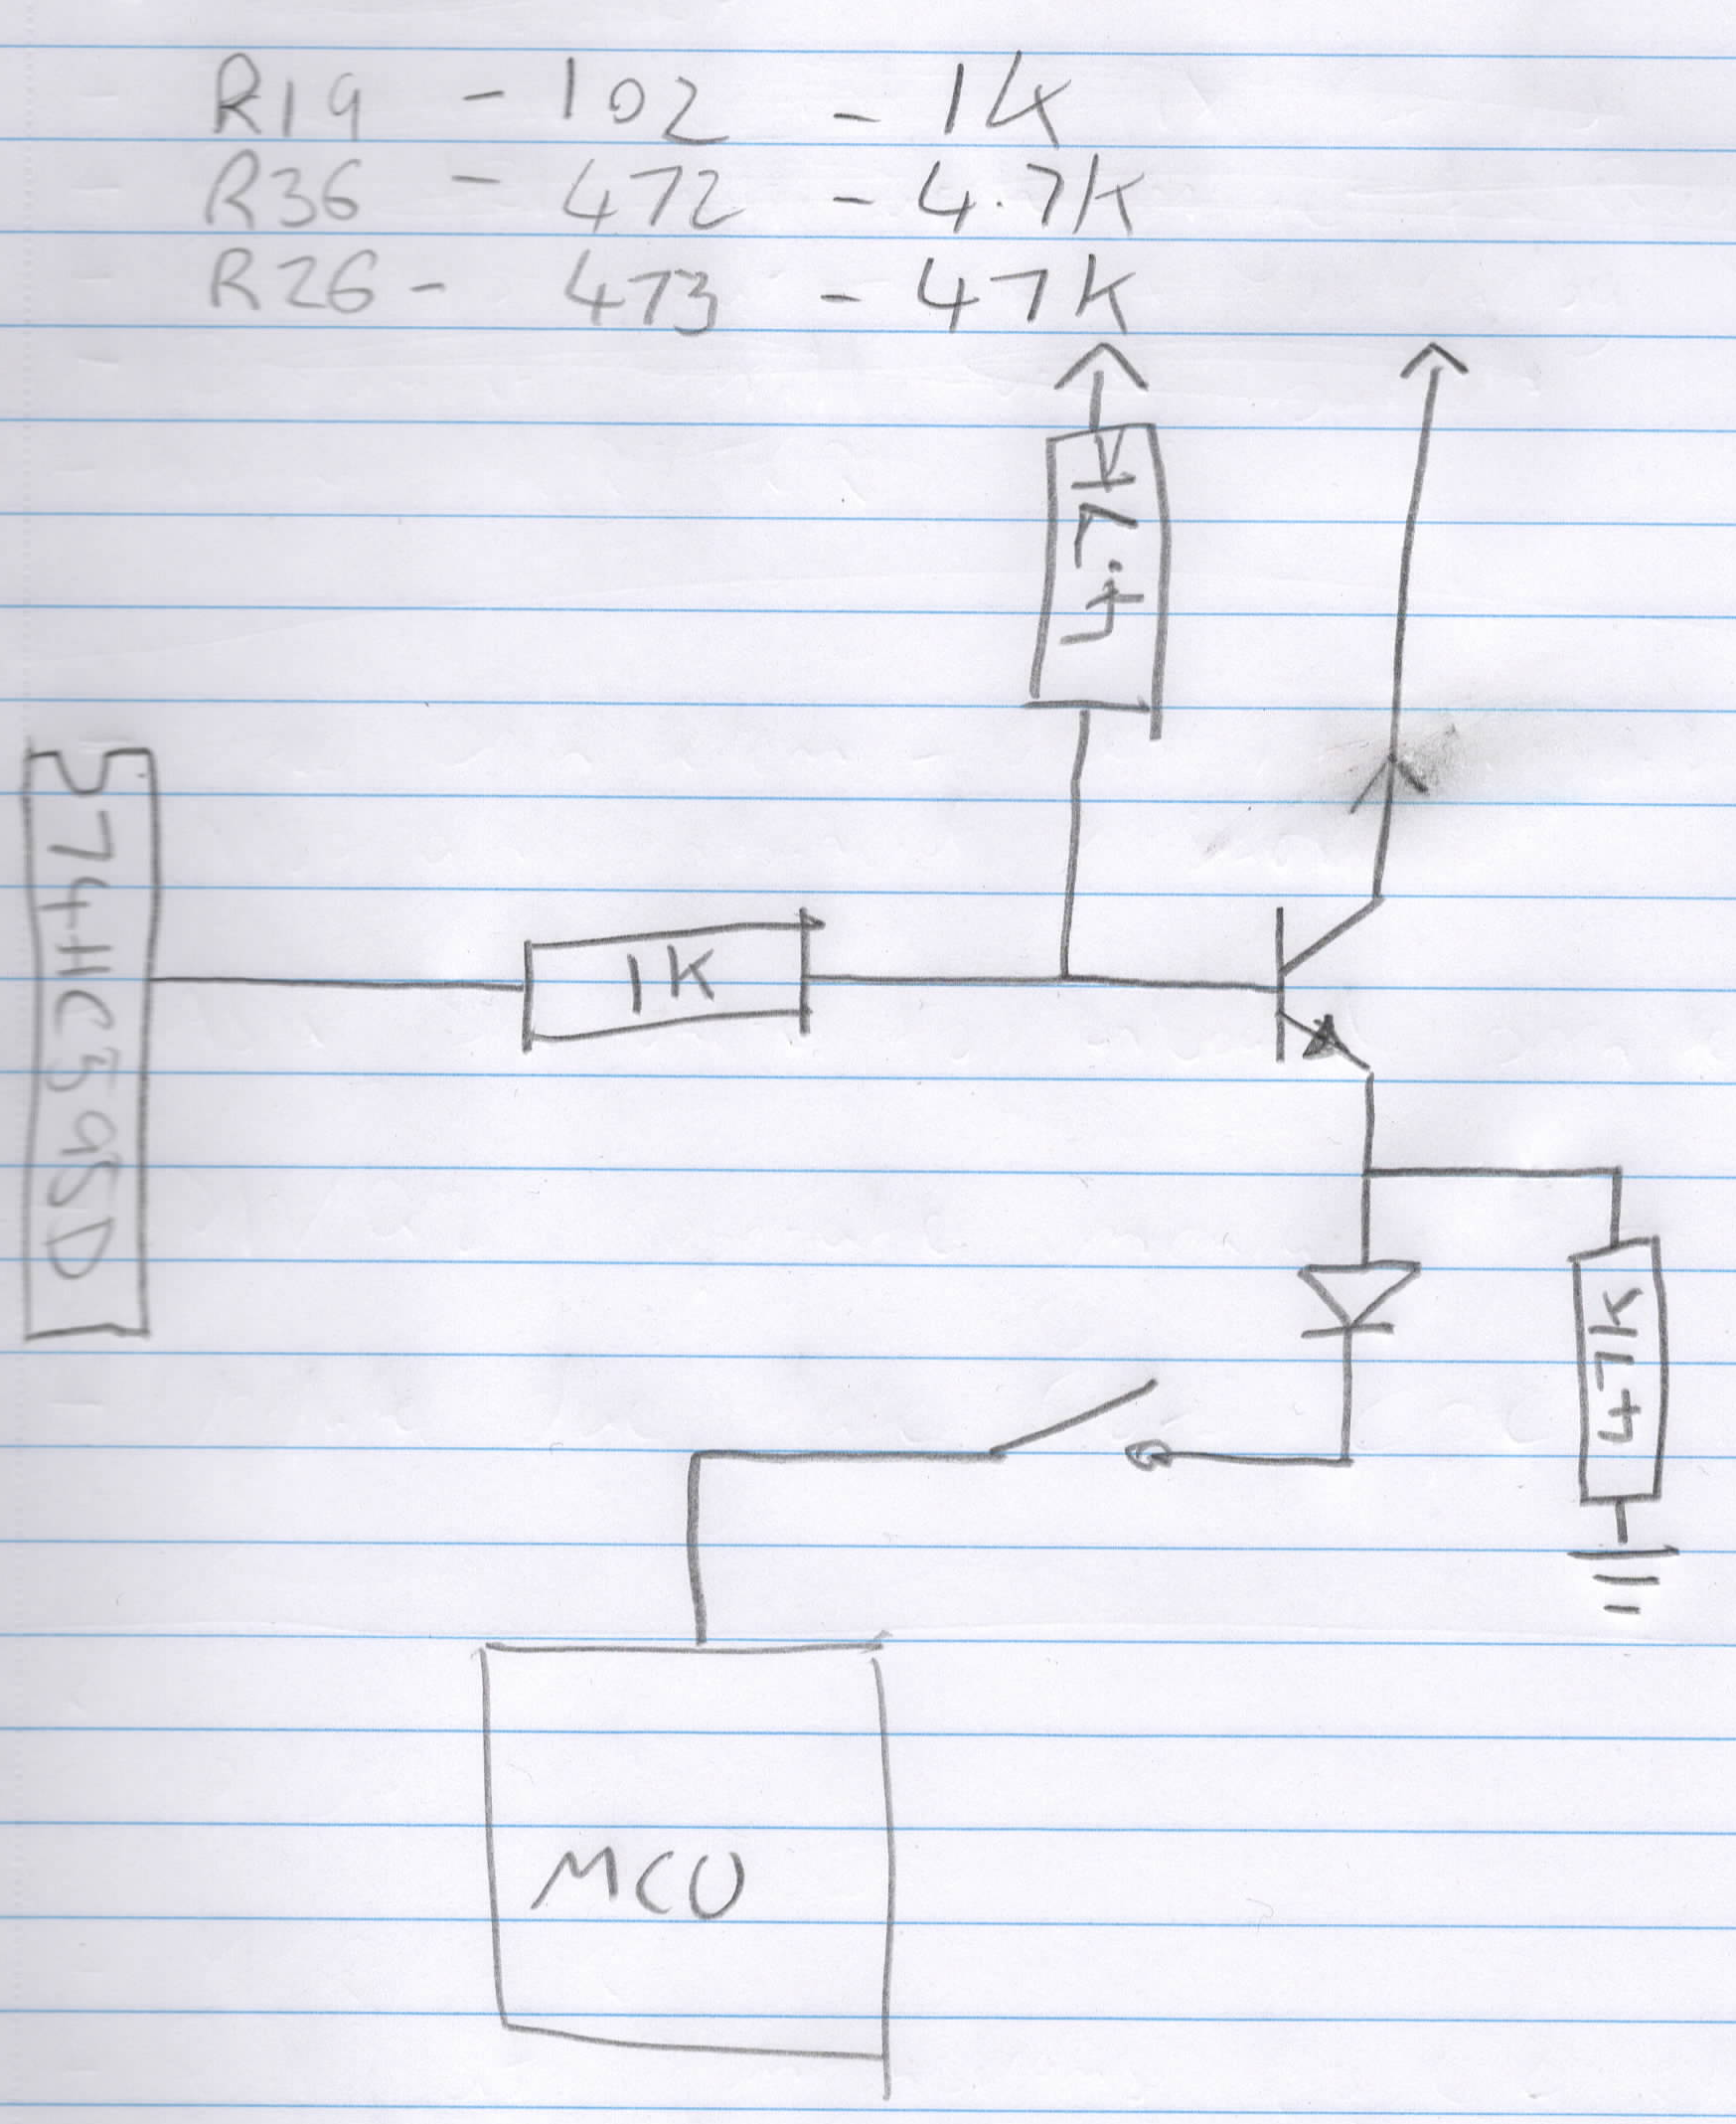 R19 - 102 - 1K
R36 - 472 - 4.7K
R26 - 473 - 47K
4.7K
74HC595D
1K
47K
MCU